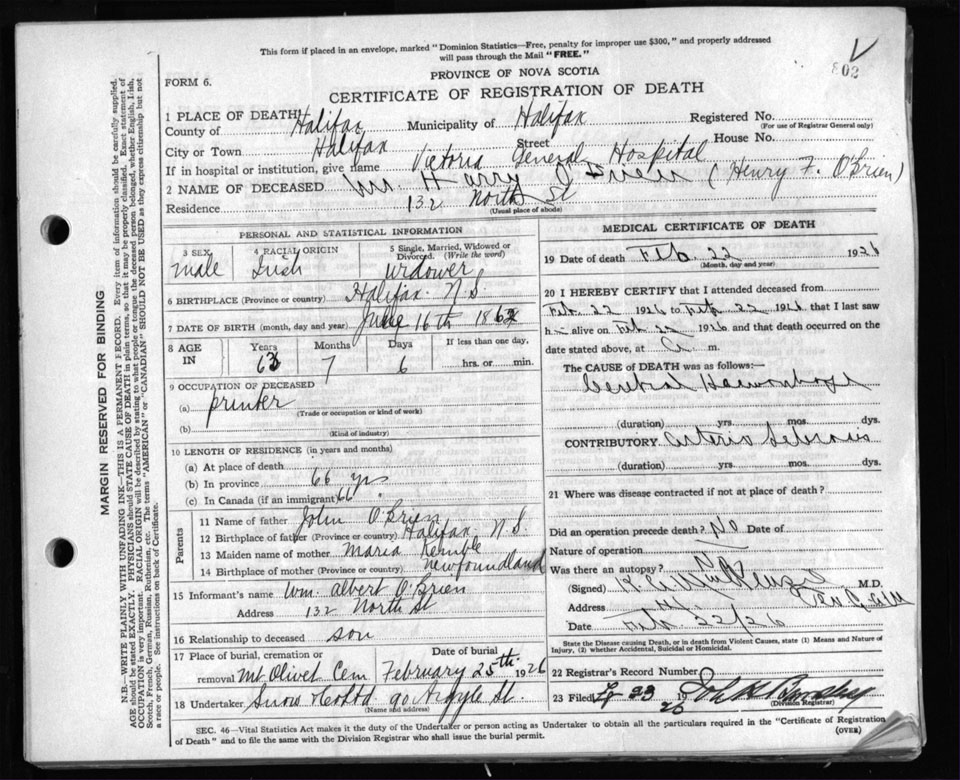 This form if placed in an envelope, marked "Dominion Statistics—Free, penalty for improper use $300," and properly addressed
will pass through the Mail "FREE."
302
FORM 6.
PROVINCE OF NOVA SCOTIA
CERTIFICATE OF REGISTRATION OF DEATH
1 PLACE OF DEATH
County of Halifax Municipality of Halifax Registered No.
(For use of Registrar General only)
City or Town Halifax Street House No.
If in hospital or institution, give name Victoria General Hospital
2 NAME OF DECEASED Mr. Harry O'Brien (Henry F. O'Brien)
Residence 132 North St
(Usual place of abode)
PERSONAL AND STATISTICAL INFORMATION
3 SEX 4 RACIAL ORIGIN 5 Single, Married, Widowed or Divorced. (Write the word)
male Irish widower
6 BIRTHPLACE (Province or country) Halifax N.S.
7 DATE OF BIRTH (month, day and year) 16th
8 AGE IN Years Months Days If less than one day,
7 6 hrs. or min.
9 OCCUPATION OF DECEASED
(a) printer
(Trade or occupation or kind of work)
(b)
(Kind of industry)
10 LENGTH OF RESIDENCE (in years and months)
(a) At place of death
(b) In province 66 yrs
(c) In Canada (if an immigrant) 66
Parents
11 Name of father John O'Brien
12 Birthplace of father (Province or country) Halifax N.S.
13 Maiden name of mother Maria Kemble
14 Birthplace of mother (Province or country) Newfoundland
15 Informant's name Wm. Albert O'Brien
Address 132 North St
16 Relationship to deceased son
17 Place of burial, cremation or removal Date of burial
Mt Olivet Cem February 25th 1926
18 Undertaker Snow & Co Ltd 90 Argyle St.
(Name and address)
MEDICAL CERTIFICATE OF DEATH
19 Date of death Feb. 22 1926
(Month, day and year)
20 I HEREBY CERTIFY that I attended deceased from
Feb. 22 1926 to Feb. 22 1926 that I last saw
h alive on Feb 22 1926 and that death occurred on the
date stated above, at a. m.
The CAUSE OF DEATH was as follows:—
Cerebral Hemorrhage
(duration) yrs. mos. dys.
CONTRIBUTORY Arterio Sclerosis
(duration) yrs. mos. dys.
21 Where was disease contracted if not at place of death?
Did an operation precede death? No Date of
Nature of operation
Was there an autopsy? No
(Signed) M.D.
Address
Date Feb. 22/26
State the Disease causing Death, or in death from Violent Causes, state (1) Means and Nature of
Injury, (2) whether Accidental, Suicidal or Homicidal.
22 Registrar's Record Number
23 Filed 23 1926
(Division Registrar)
SEC. 46—Vital Statistics Act makes it the duty of the Undertaker or person acting as Undertaker to obtain all the particulars required in the "Certificate of Registration
of Death" and to file the same with the Division Registrar who shall issue the burial permit.
(OVER)
MARGIN RESERVED FOR BINDING
N.B.—WRITE PLAINLY WITH UNFADING INK—THIS IS A PERMANENT RECORD. Every item of information should be carefully supplied.
AGE should be stated EXACTLY. PHYSICIANS should STATE CAUSE OF DEATH in plain terms, so that it may be properly classified. Exact statement of
OCCUPATION is very important. RACIAL ORIGIN will be described by stating to what people or tongue the deceased person belonged, whether English, Irish,
Scotch, French, German, Russian, Ruthenian, etc. The terms "AMERICAN" or "CANADIAN" SHOULD NOT BE USED as they express citizenship but not
a race or people. See instructions on back of Certificate.